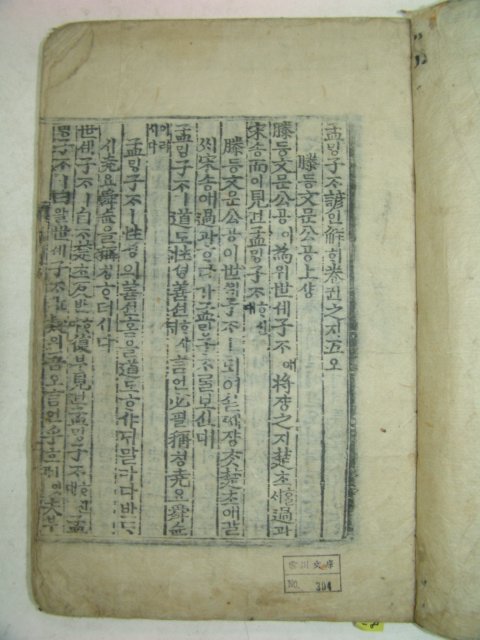 孟밍子ᄌᆞ諺언解ᄒᆡ卷권之지五오
滕등文문公공上샹
滕등文문公공이為위世셰子ᄌᆞ애將쟝之지楚초ᄒᆞᆯᄉᆡ過과
宋송而이見견孟밍子ᄌᆞᄒᆞ신대
滕등文문公공이世셰子ᄌᆞㅣ되여실제쟝ᄎᆞᆺ楚초애갈
ᄉᆡ宋송애過과ᄒᆞ다가孟밍子ᄌᆞᄅᆞᆯ보신대
孟밍子ᄌᆞㅣ道도性셩善션ᄒᆞ샤ᄃᆡ言언必필稱칭堯요舜슌
이러시다
孟밍子ᄌᆞㅣ性셩의善션홈을道도ᄒᆞ샤ᄃᆡ말마다반ᄃᆞ
시堯요舜슌을稱칭ᄒᆞ더시다
世셰子ᄌᆞㅣ自ᄌᆞ楚초反반ᄒᆞ야復부見견孟밍子ᄌᆞᄒᆞ신대孟
밍子ᄌᆞㅣ曰왈世셰子ᄌᆞᄂᆞᆫ疑의吾오言언乎호잇가夫부
NO. 304